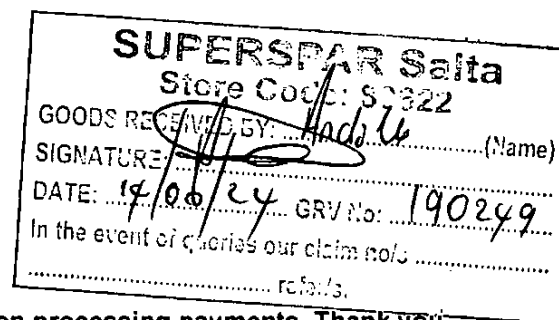 SUPERSPAR Salta
Store Code:
GOODS RECEIVED BY: (Name)
SIGNATURE:
DATE: 14/06/24 GRV No: 190249
In the event of queries our claim no/s
refer/s.
on processing payments. Thank you